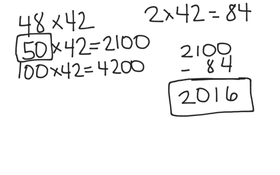 48 × 42
50 × 42 = 2100
100 × 42 = 4200
2 × 42 = 84
2100
- 84
2016